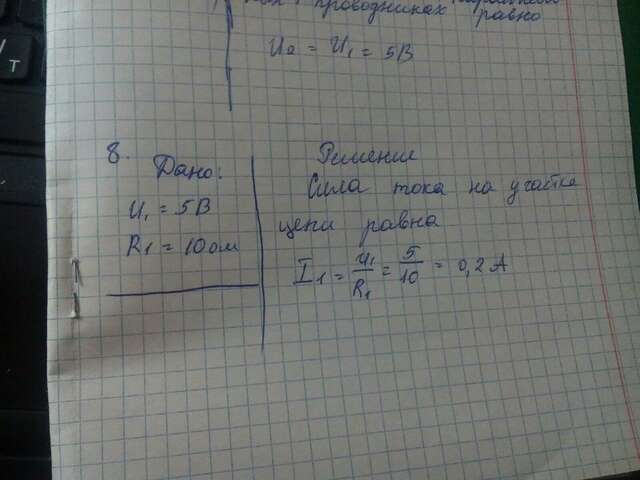 проводниках
равно
U₂ = U₁ = 5В
8.
Дано:
U₁ = 5В
R₁ = 10 ом
Решение
Сила тока на участке
цепи равна
I₁ = U₁/R₁ = 5/10 = 0,2 А
Т